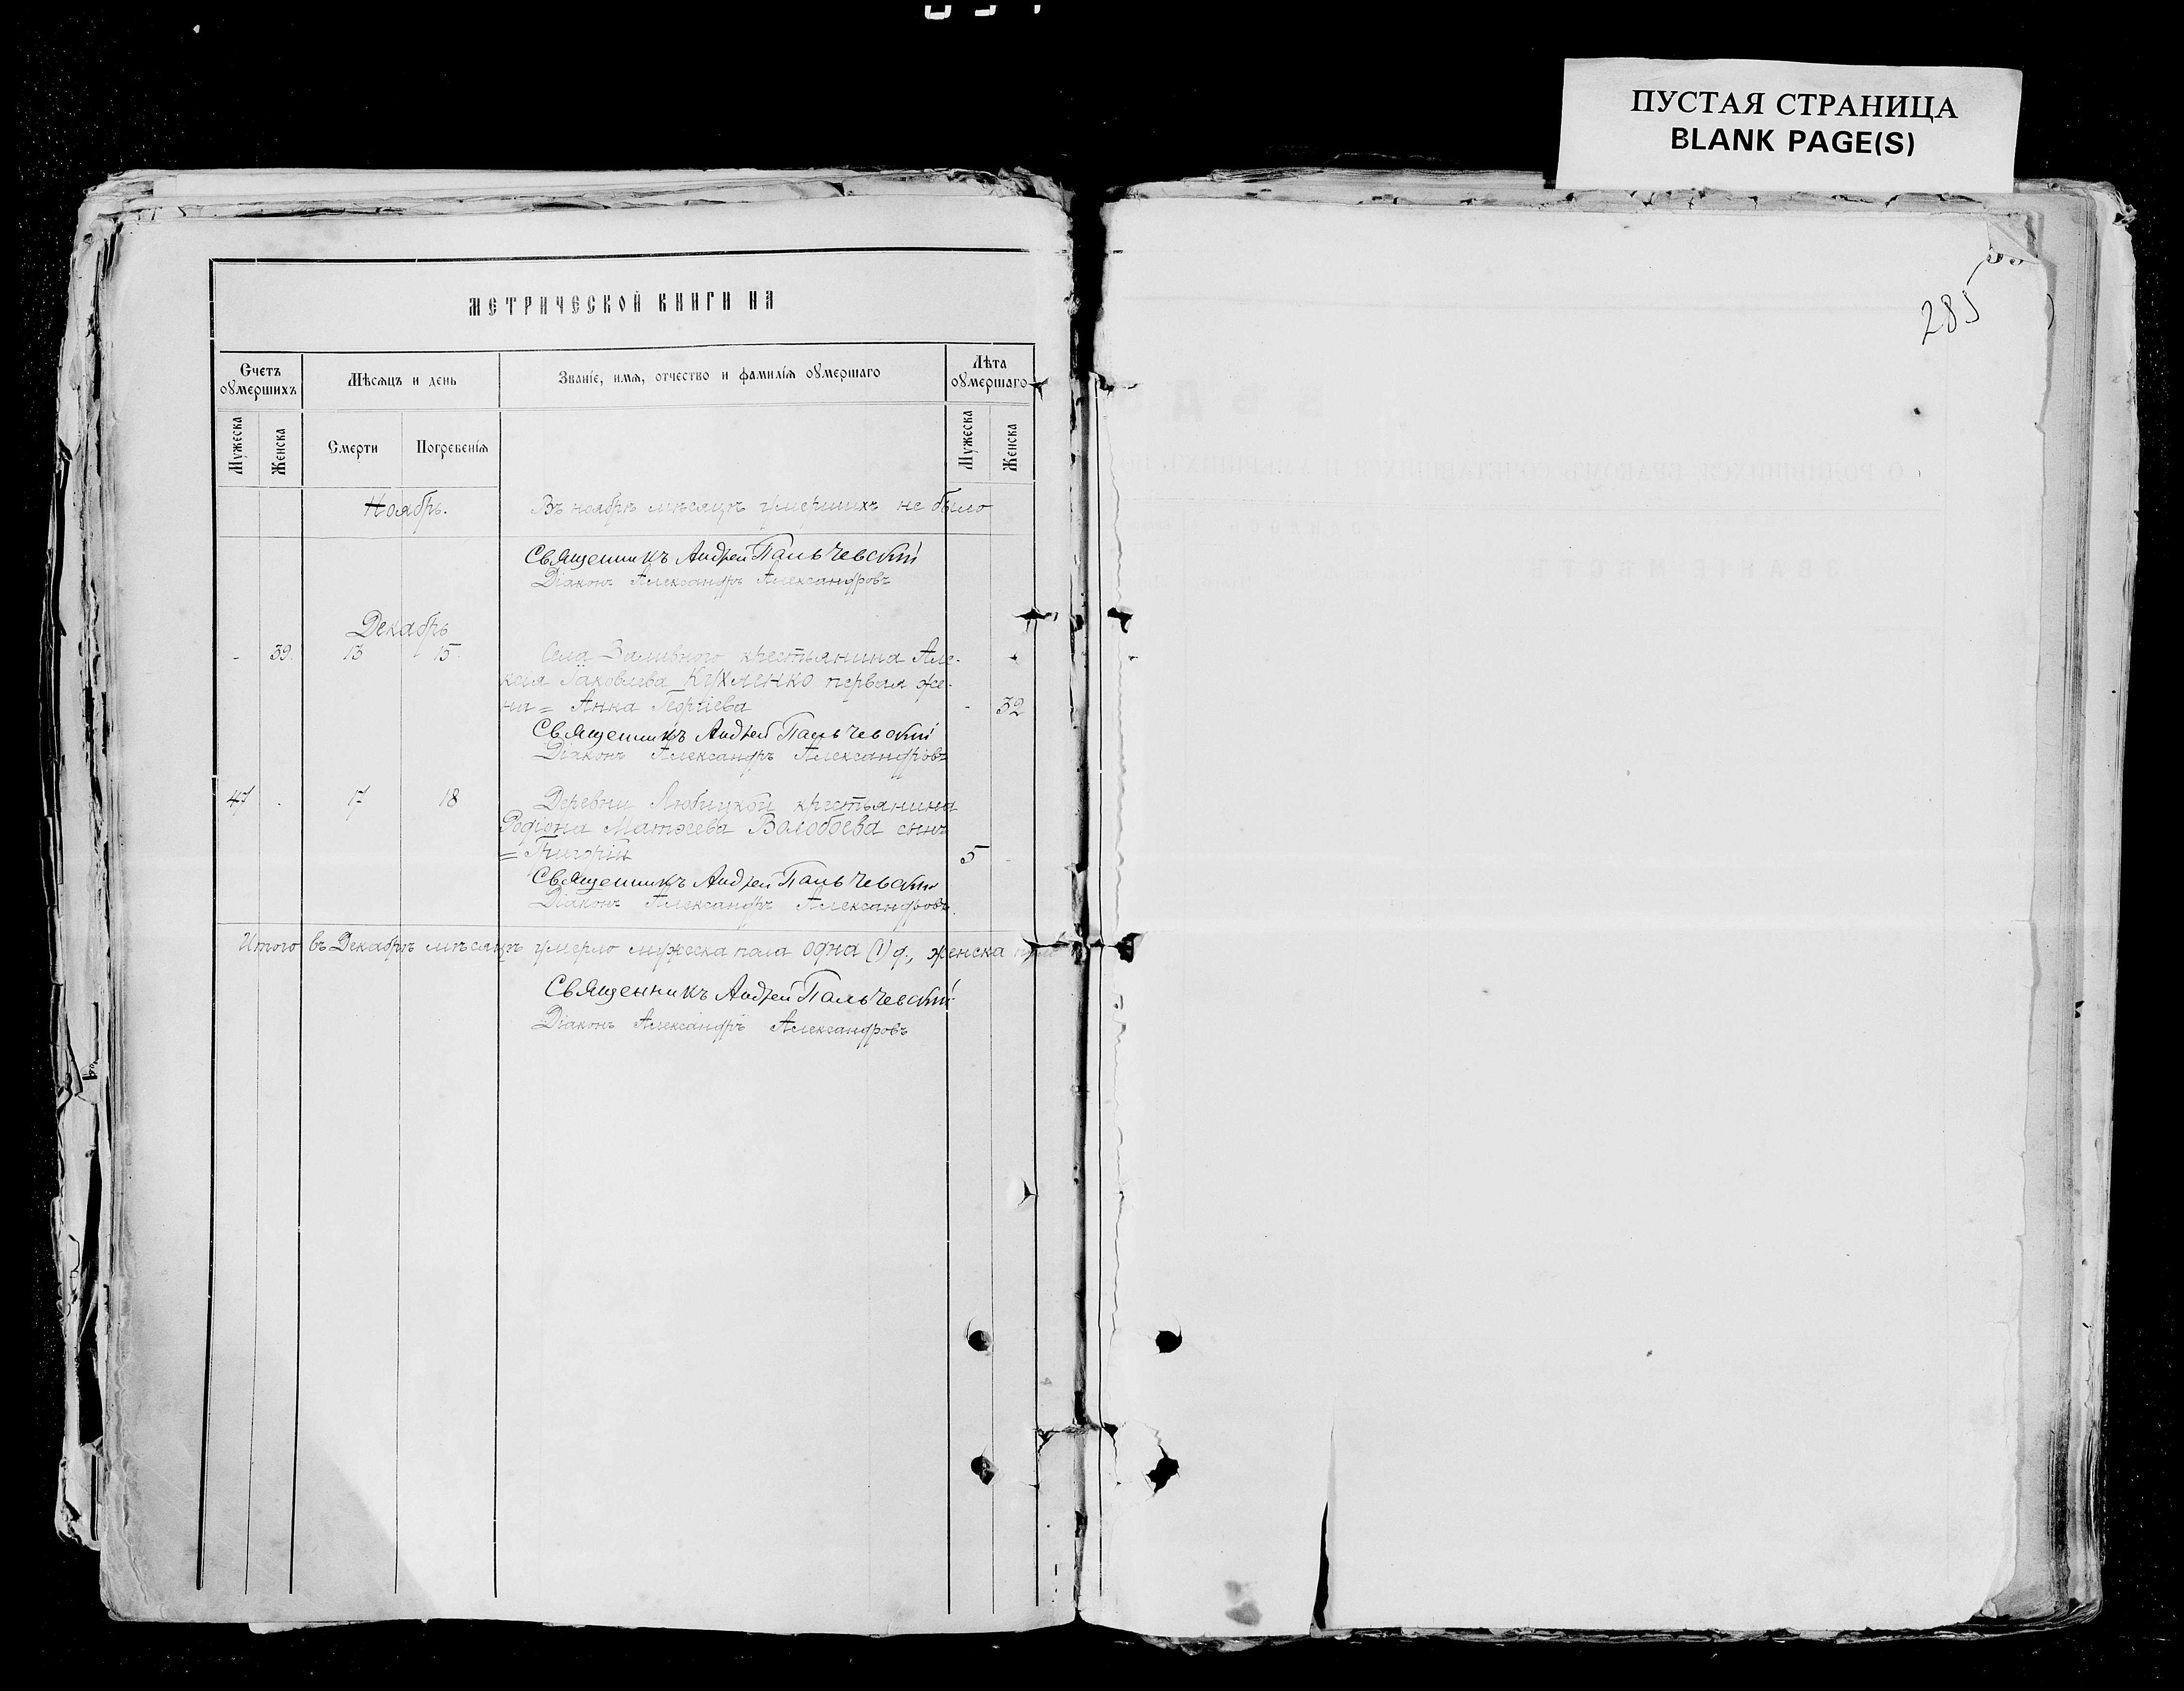 ПУСТАЯ СТРАНИЦА
BLANK PAGE(S)
285
МЕТРИЧЕСКОЙ КНИГИ НА
Счетъ оумершихъ
Мѣсяцъ и день
Званіе, имя, отчество и фамилія оумершаго
Лѣта оумершаго
Мужеска
Женска
Смерти
Погребенія
Мужеска
Женска
Ноябрь.
Въ ноябрѣ мѣсяцѣ умершихъ не было
Священникъ Андрей Пальчевскій
Діаконъ Александръ Александровъ
Декабрь
- 39. 13 15. Села Заливного крестьянина Але-
ксія Іаковлева Кухленко первая же-
на = Анна Георгіева - 32
Священникъ Андрей Пальчевскій
Діаконъ Александръ Александровъ
47 . 17 18 Деревни Любицкой крестьянина
Родіона Матѳеева Волобоева сынъ
= Григорій 5 -
Священникъ Андрей Пальчевскій
Діаконъ Александръ Александровъ.
Итого въ Декабрѣ мѣсяцѣ умерло мужеска пола одна (1) д., женска пола
Священникъ Андрей Пальчевскій
Діаконъ Александръ Александровъ